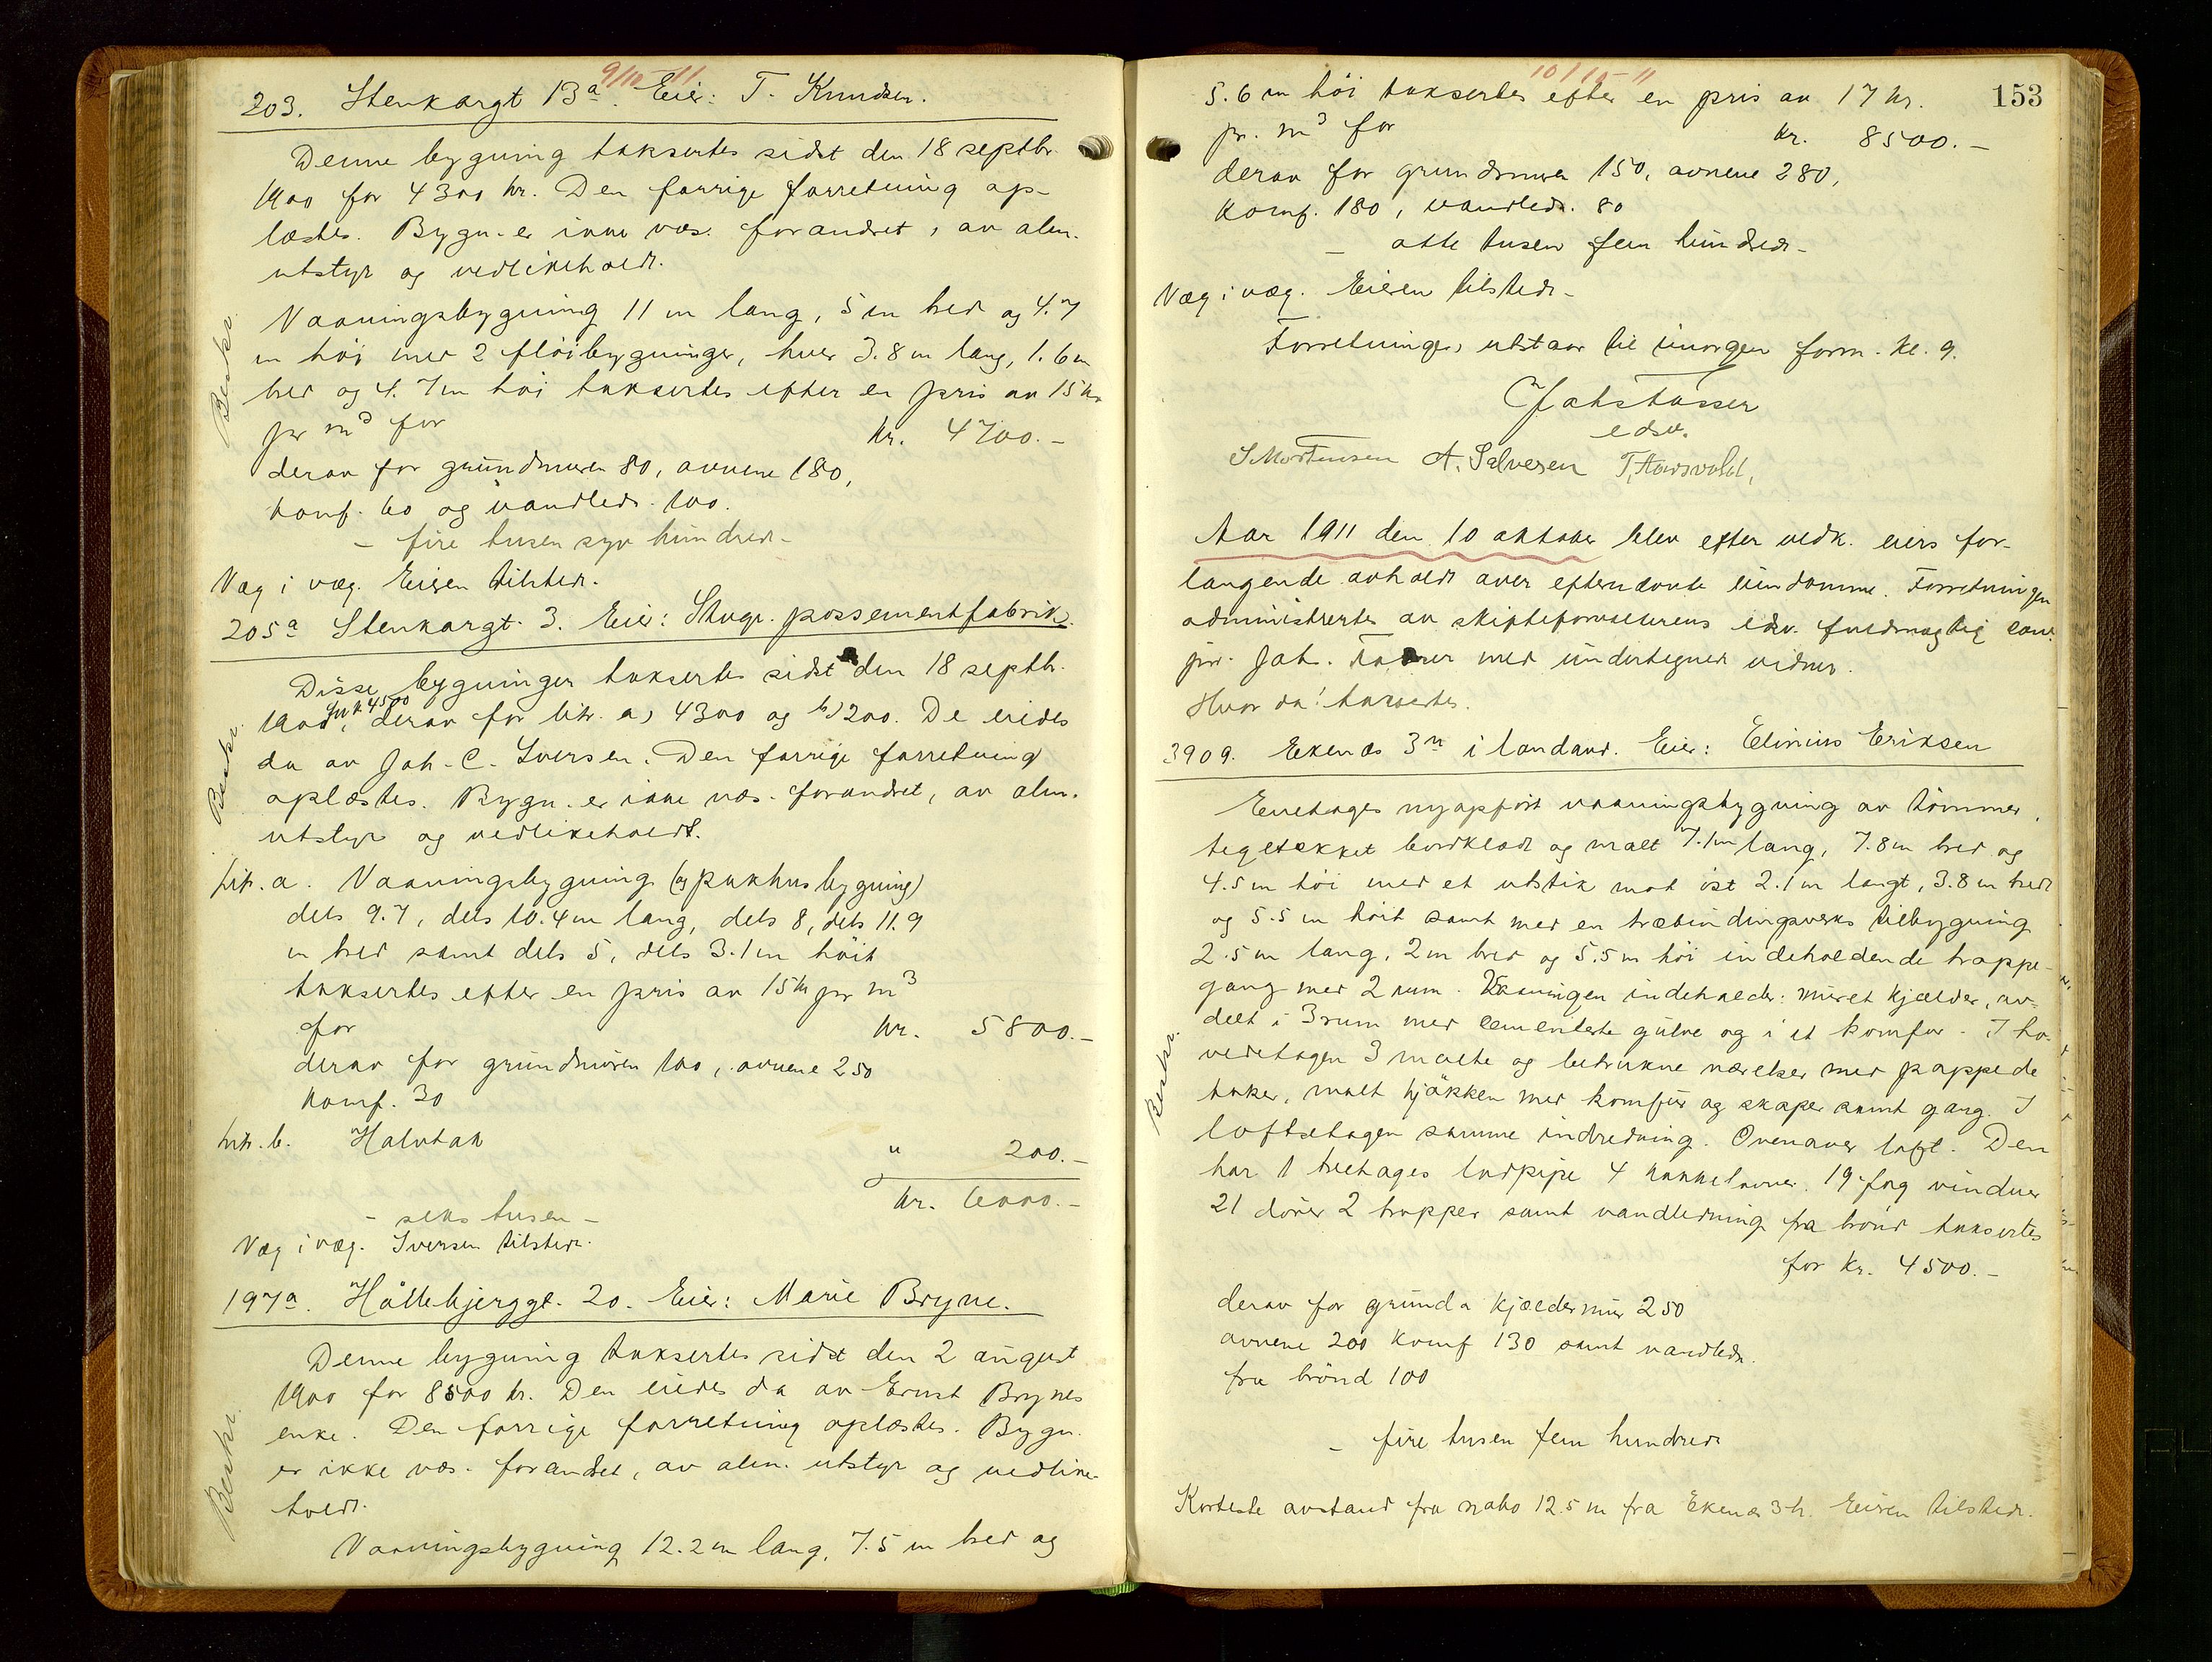 9/10-11
203. Stenkargt 13a. Eier: T. Knudsen.
Denne bygning taksertes sidst den 18 septbr.
1900 for 4300 kr. Den forrige forretning op-
læstes. Bygn. er ikke væs. forandret, av alm.
utstyr og vedlikeholdt.
Beskr.
Vaaningsbygning 11 m lang, 5 m bred og 4.7
m höi med 2 flöibygninger, hver 3.8 m lang, 1.6 m
bred og 4.7 m höi taksertes efter en pris av 15 kr
pr m3 for kr. 4700.-
derav for grundmuren 80, ovnene 180,
komf. 60 og vandledn. 100.
- fire tusen syv hundred -
Væg i væg. Eieren tilstede.
205a Stenkargt. 3. Eier: Stvgr. possementfabrik.
Disse bygninger taksertes sidst den 18 septbr.
1900, for kr 4500 derav for litr. a) 4300 og b) 200. De eiedes
Beskr.
da av Joh. C. Iversen. Den forrige forretning
oplæstes. Bygn. er ikke væs. forandret, av alm.
utstyr og vedlikeholdt.
Litr. a. Vaaningsbygning (og pakhusbygning)
dels 9.7, dels 10.4 m lang, dels 8, dels 11.9
m bred samt dels 5, dels 3.1 m höit
taksertes efter en pris av 15 kr pr m3
for kr. 5800.-
derav for grundmuren 100, ovnene 250
komf. 30
Litr. b. Halvtak " 200.-
kr. 6000.-
- seks tusen -
Væg i væg. Iversen tilstede.
197a. Hållebjerggt. 20. Eier: Marie Bryne.
Denne bygning taksertes sidst den 2 august
1900 for 8500 kr. Den eiedes da av Ernst Brynes
enke. Den forrige forretning oplæstes. Bygn.
Beskr.
er ikke væs. forandret, av alm. utstyr og vedlike-
holdt.
Vaaningsbygning 12.2 m lang, 7.5 m bred og
10/10-11
153
5.6 m höi taksertes efter en pris av 17 kr.
pr. m3 for kr. 8500.-
derav for grundmuren 150, ovnene 280,
komf. 180, vandledn. 80
- otte tusen fem hundred -
Væg i væg. Eieren tilstede -
Forretningen utstaar til imorgen form. kl. 9.
edsv.
S Mortensen A. Salvesen
Aar 1911 den 10 oktober blev efter vedk. eiers for-
langende avholdt over efternævnte eiendomme. Forretningen
administrertes av skifteforvalterens edsv. fuldmægtig cand.
jur. Joh. med undertegnede vidner.
Hvor da: taksertes.
3909. Ekenæs 3n i landavd. Eier: Elinius Eriksen
Enetages nyopfört vaaningsbygning av tömmer,
teglstekket bordklædt og malt 7.1 m lang, 7.8 m bred og
4.5 m höi med et utstik mot öst 2.1 m langt, 3.8 m bredt
og 5.5 m höit samt med en træbindingsverks tilbygning
2.5 m lang, 2 m bred og 5.5 m höi indeholdende trappe-
gang med 2 rum. Vaaningen indeholder: muret kjælder, av-
delt i 3 rum med cementerte gulve og i et komfur. I ho-
vedetagen 3 malte og betrukne værelser med pappede
Beskr.
taker, malt kjökken med komfur og skaper samt gang. I
loftsetagen samme indredning. Ovenover loft. Den
har 1 treetages lodpipe 4 kakkelovner. 19 fag vinduer
21 dörer 2 trapper samt vandledning fra brönd taksertes
for kr. 4500.-
derav for grund a kjældermur 250
ovnene 200 komf 130 samt vandledn.
fra brönd 100
- fire tusen fem hundred
Korteste avstand fra nabo 12.5 m fra Ekenæs 3h. Eieren tilstede.